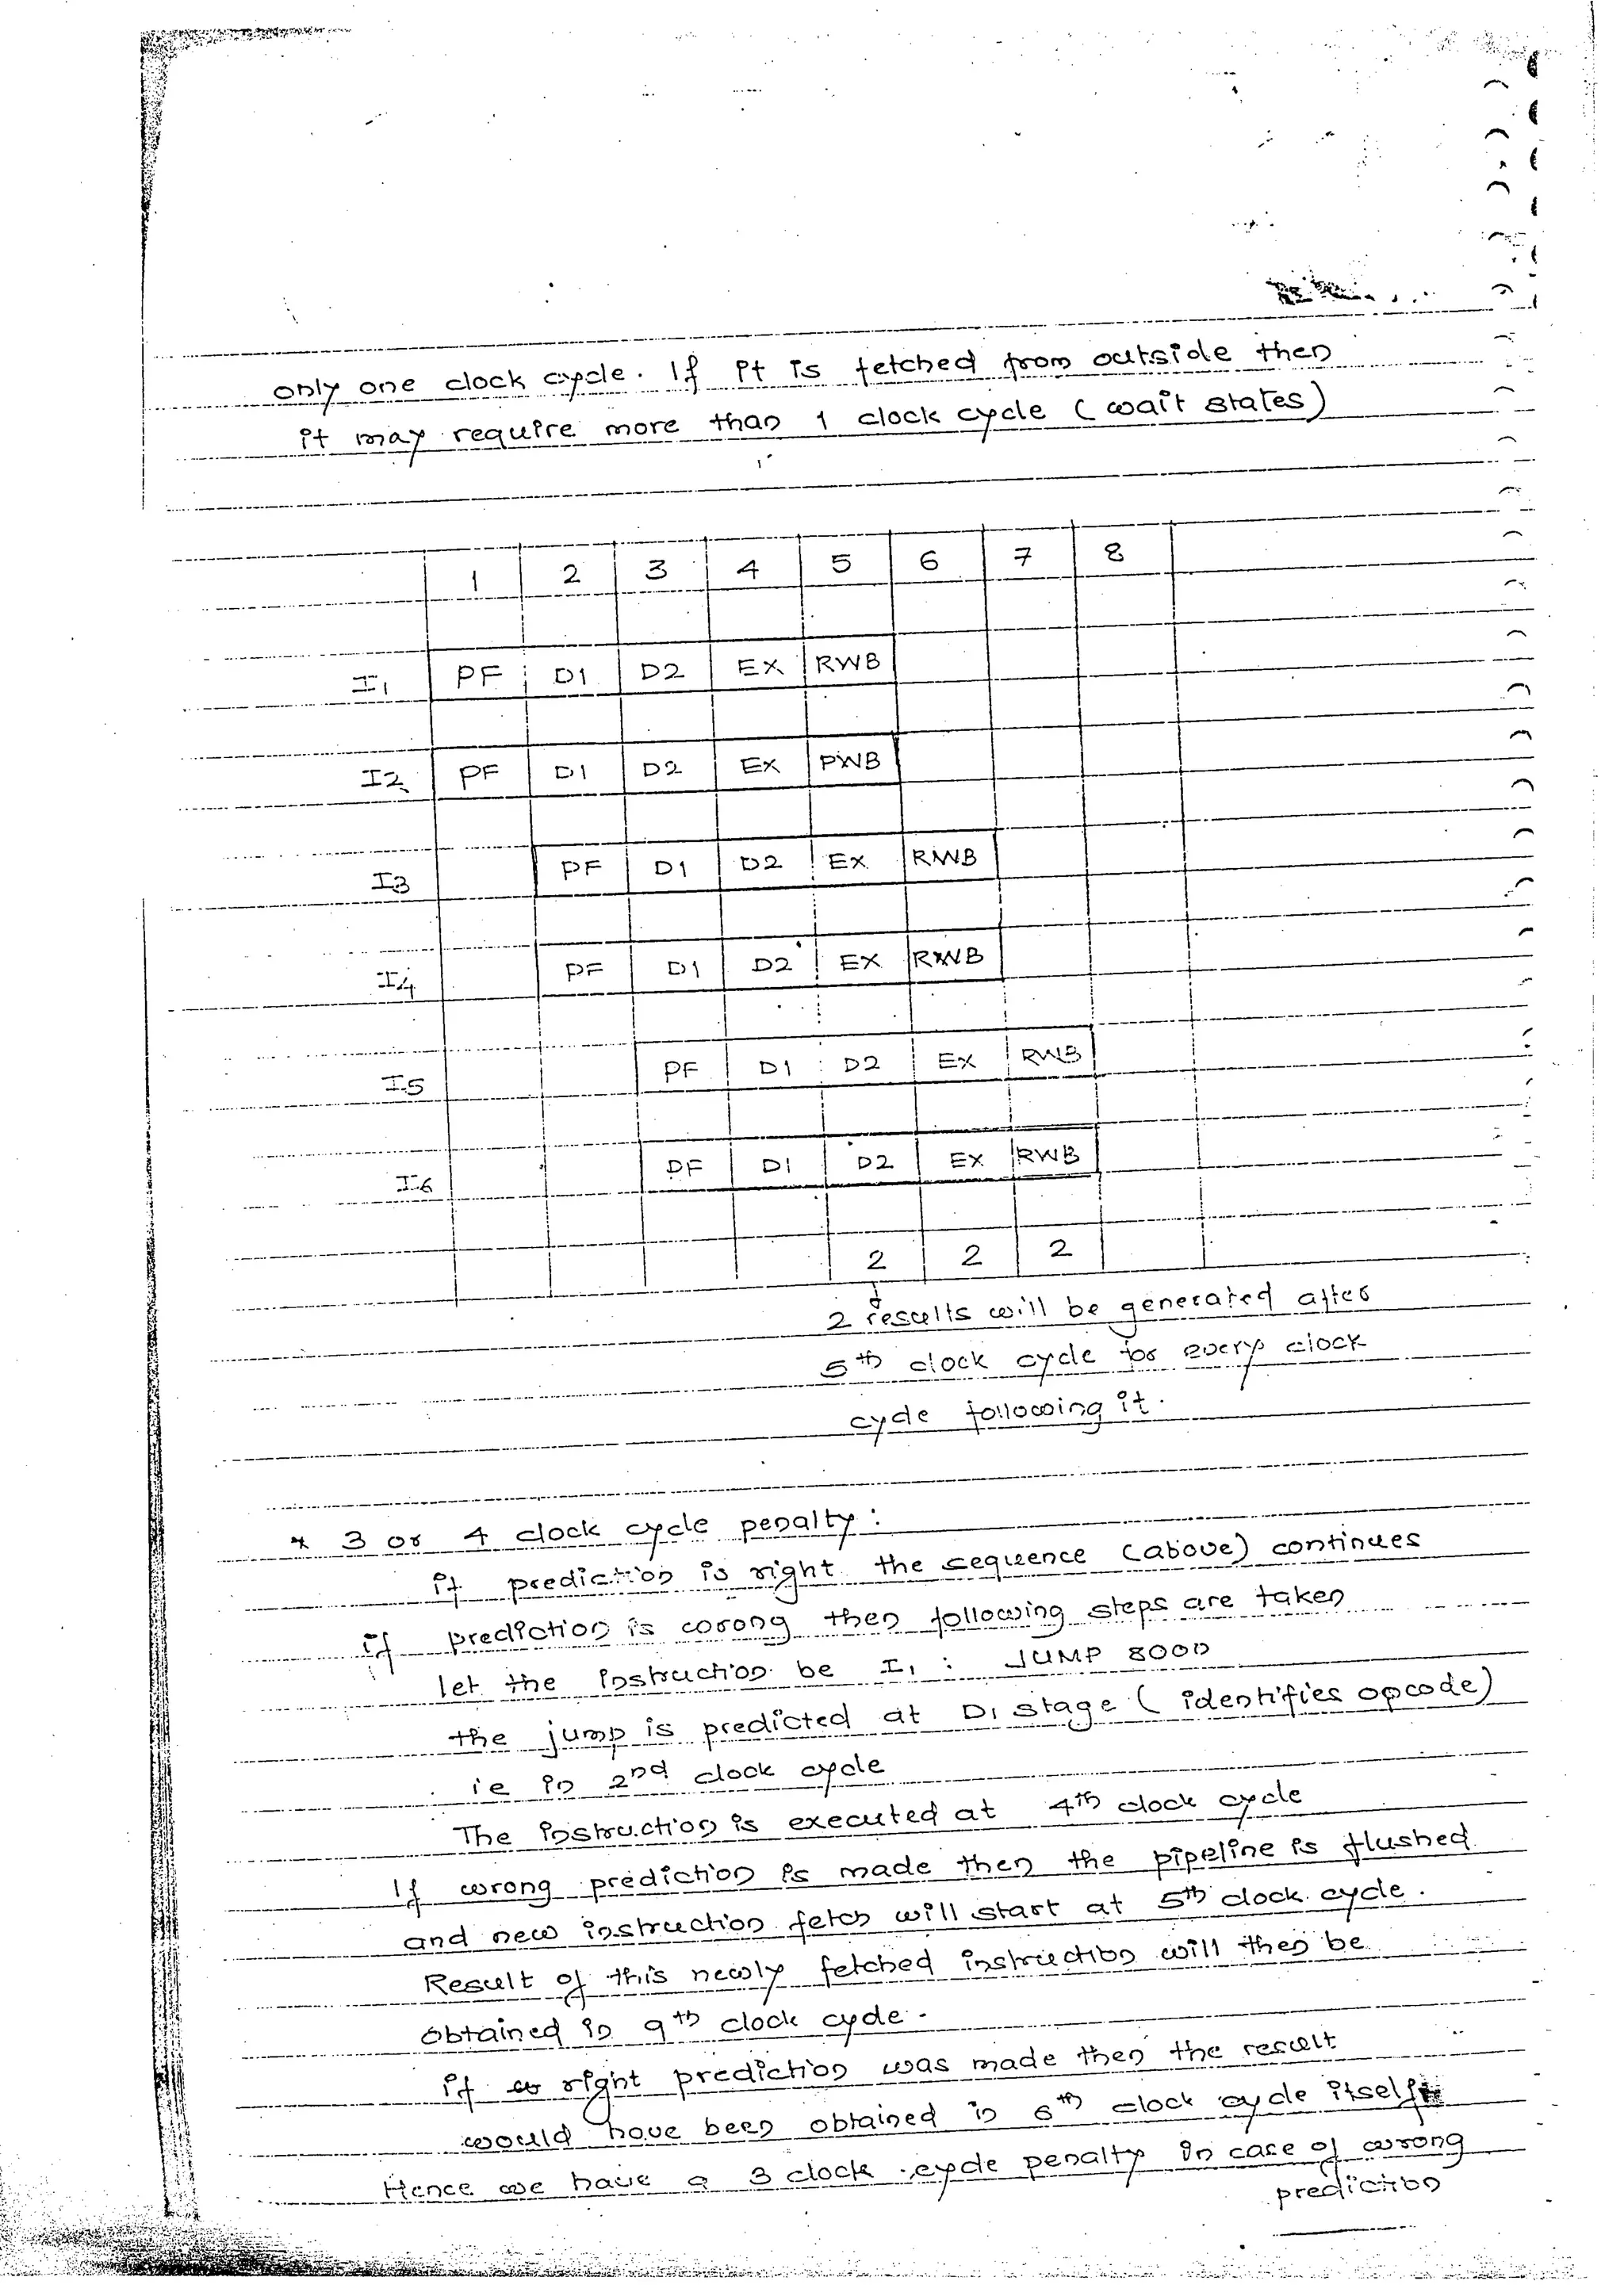 only one clock cycle. If it is fetched from outside then
it may require more than 1 clock cycle (wait states)
1 2 3 4 5 6 7 8
I1 PF D1 D2 EX RWB
I2 PF D1 D2 EX PWB
I3 PF D1 D2 EX RWB
I4 PF D1 D2 EX RWB
I5 PF D1 D2 EX RWB
I6 PF D1 D2 EX RWB
2 2 2
2 results will be generated after
5th clock cycle for every clock
cycle following it.
* 3 or 4 clock cycle penalty :
if prediction is right the sequence (above) continues
if prediction is wrong then following steps are taken
let the instruction be I1 : JUMP 8000
the jump is predicted at D1 stage ( identifies opcode)
ie in 2nd clock cycle
The instruction is executed at 4th clock cycle
If wrong prediction is made then the pipeline is flushed
and new instruction fetch will start at 5th clock cycle.
Result of this newly fetched instruction will then be
obtained in 9th clock cycle.
if right prediction was made then the result
would have been obtained in 6th clock cycle itself
Hence we have a 3 clock cycle penalty in case of wrong
prediction